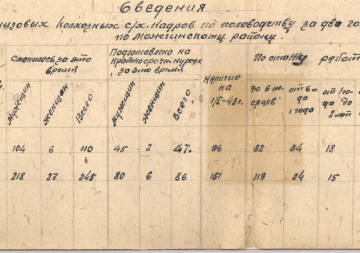 Сведения
низовых колхозных с/х. кадров по полеводству за два го
по Можгинскому району.
Сменилось за это время
Подготовлено на краткосрочн. курсах за это время
Наличие на 1/I-43г.
По стажу работ
Мужчин
женщин
Всего
Мужчин
женщин
Всего
до 6 месяцев
от 6 м. до 1 года
от 1 года до 2 лет
104 6 110 45 2 47. 96 32 34 18
218 27 245 80 6 86 151 119 24 15